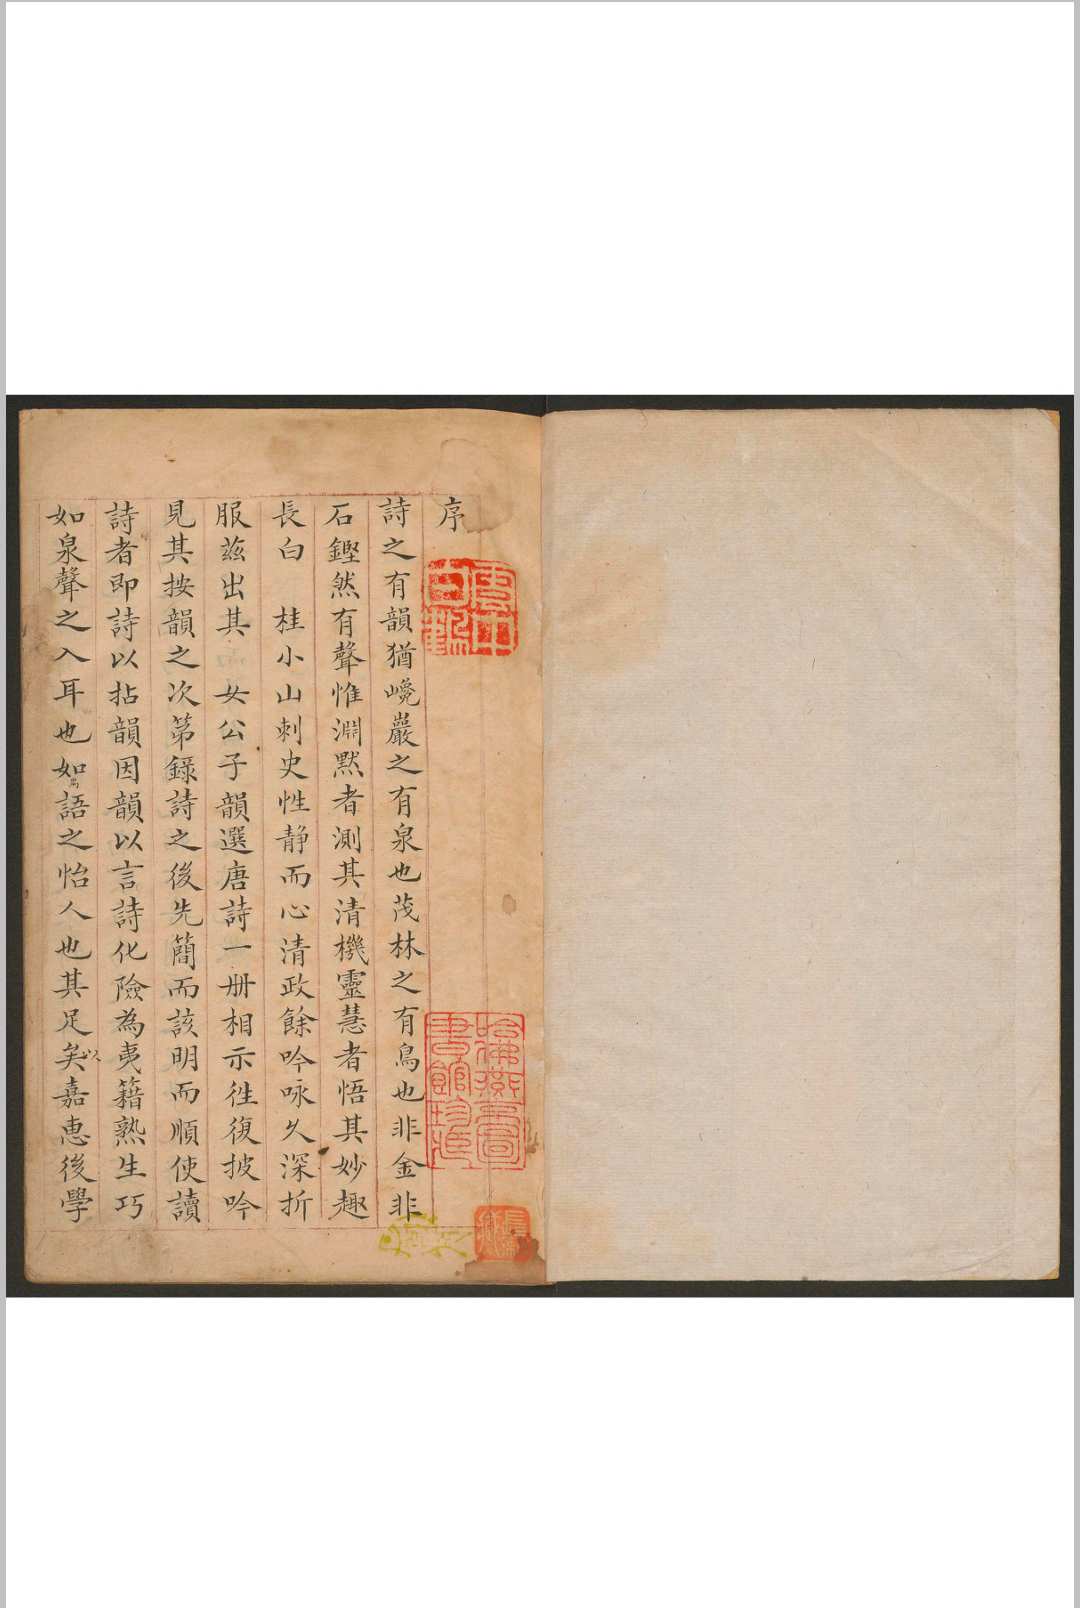 序
詩之有韻猶巉巖之有泉也茂林之有鳥也非金非
石鏗然有聲惟淵默者測其清機靈慧者悟其妙趣
長白　桂小山刺史性静而心清政餘吟咏久深折
服茲出其　女公子韻選唐詩一册相示徃復披吟
見其按韻之次第錄詩之後先簡而該明而順使讀
詩者即詩以拈韻因韻以言詩化險為夷籍熟生巧
如泉聲之入耳也如鳥語之怡人也其足矣以嘉惠後學
哈佛燕京圖
書館珍藏